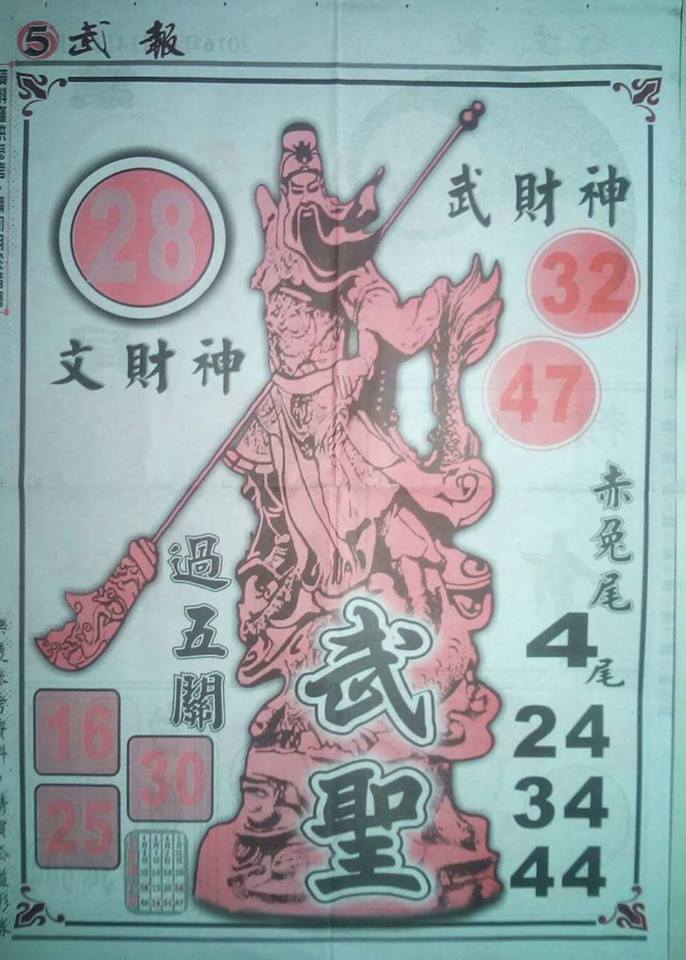 5 武報
28
文財神
武財神
32
47
赤兔尾
4尾
24
34
44
過五關
16
30
25
武聖